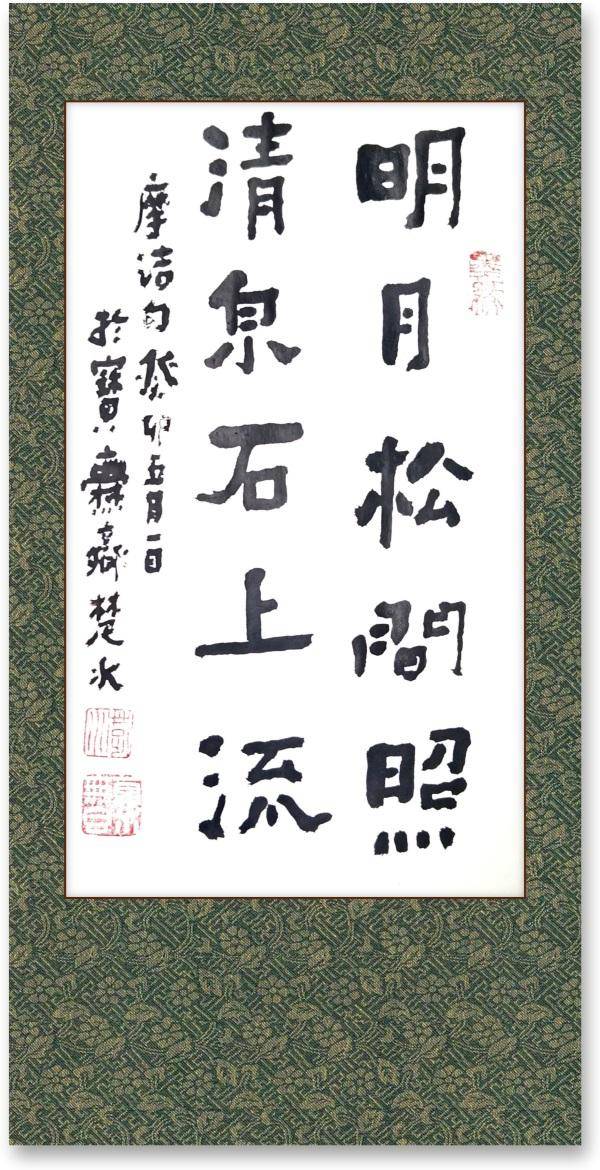 明月松間照
清泉石上流
摩詰句癸卯五月一日
於寶
楚水